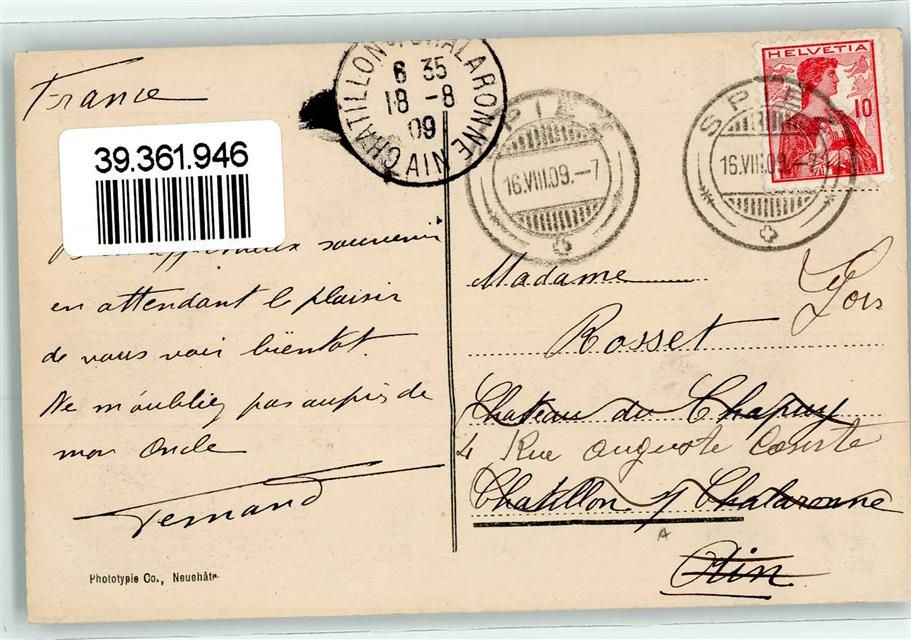 France
39.361.946
affectueux souvenir
en attendant le plaisir
de vous voir bientot.
Ne m'oubliez pas auprès de
mon Oncle
Fernand
Phototypie Co., Neuchâte
CHATILLON S. CHALARONNE
6 35
18 - 8
09
AIN
SPIEZ
16.VIII.09.-7
SPIEZ
16.VIII.09.-7
HELVETIA
10
Madame
Rosset
Chateau du Chapuy
4 Rue Auguste Comte
Chatillon s/ Chalaronne
Ain